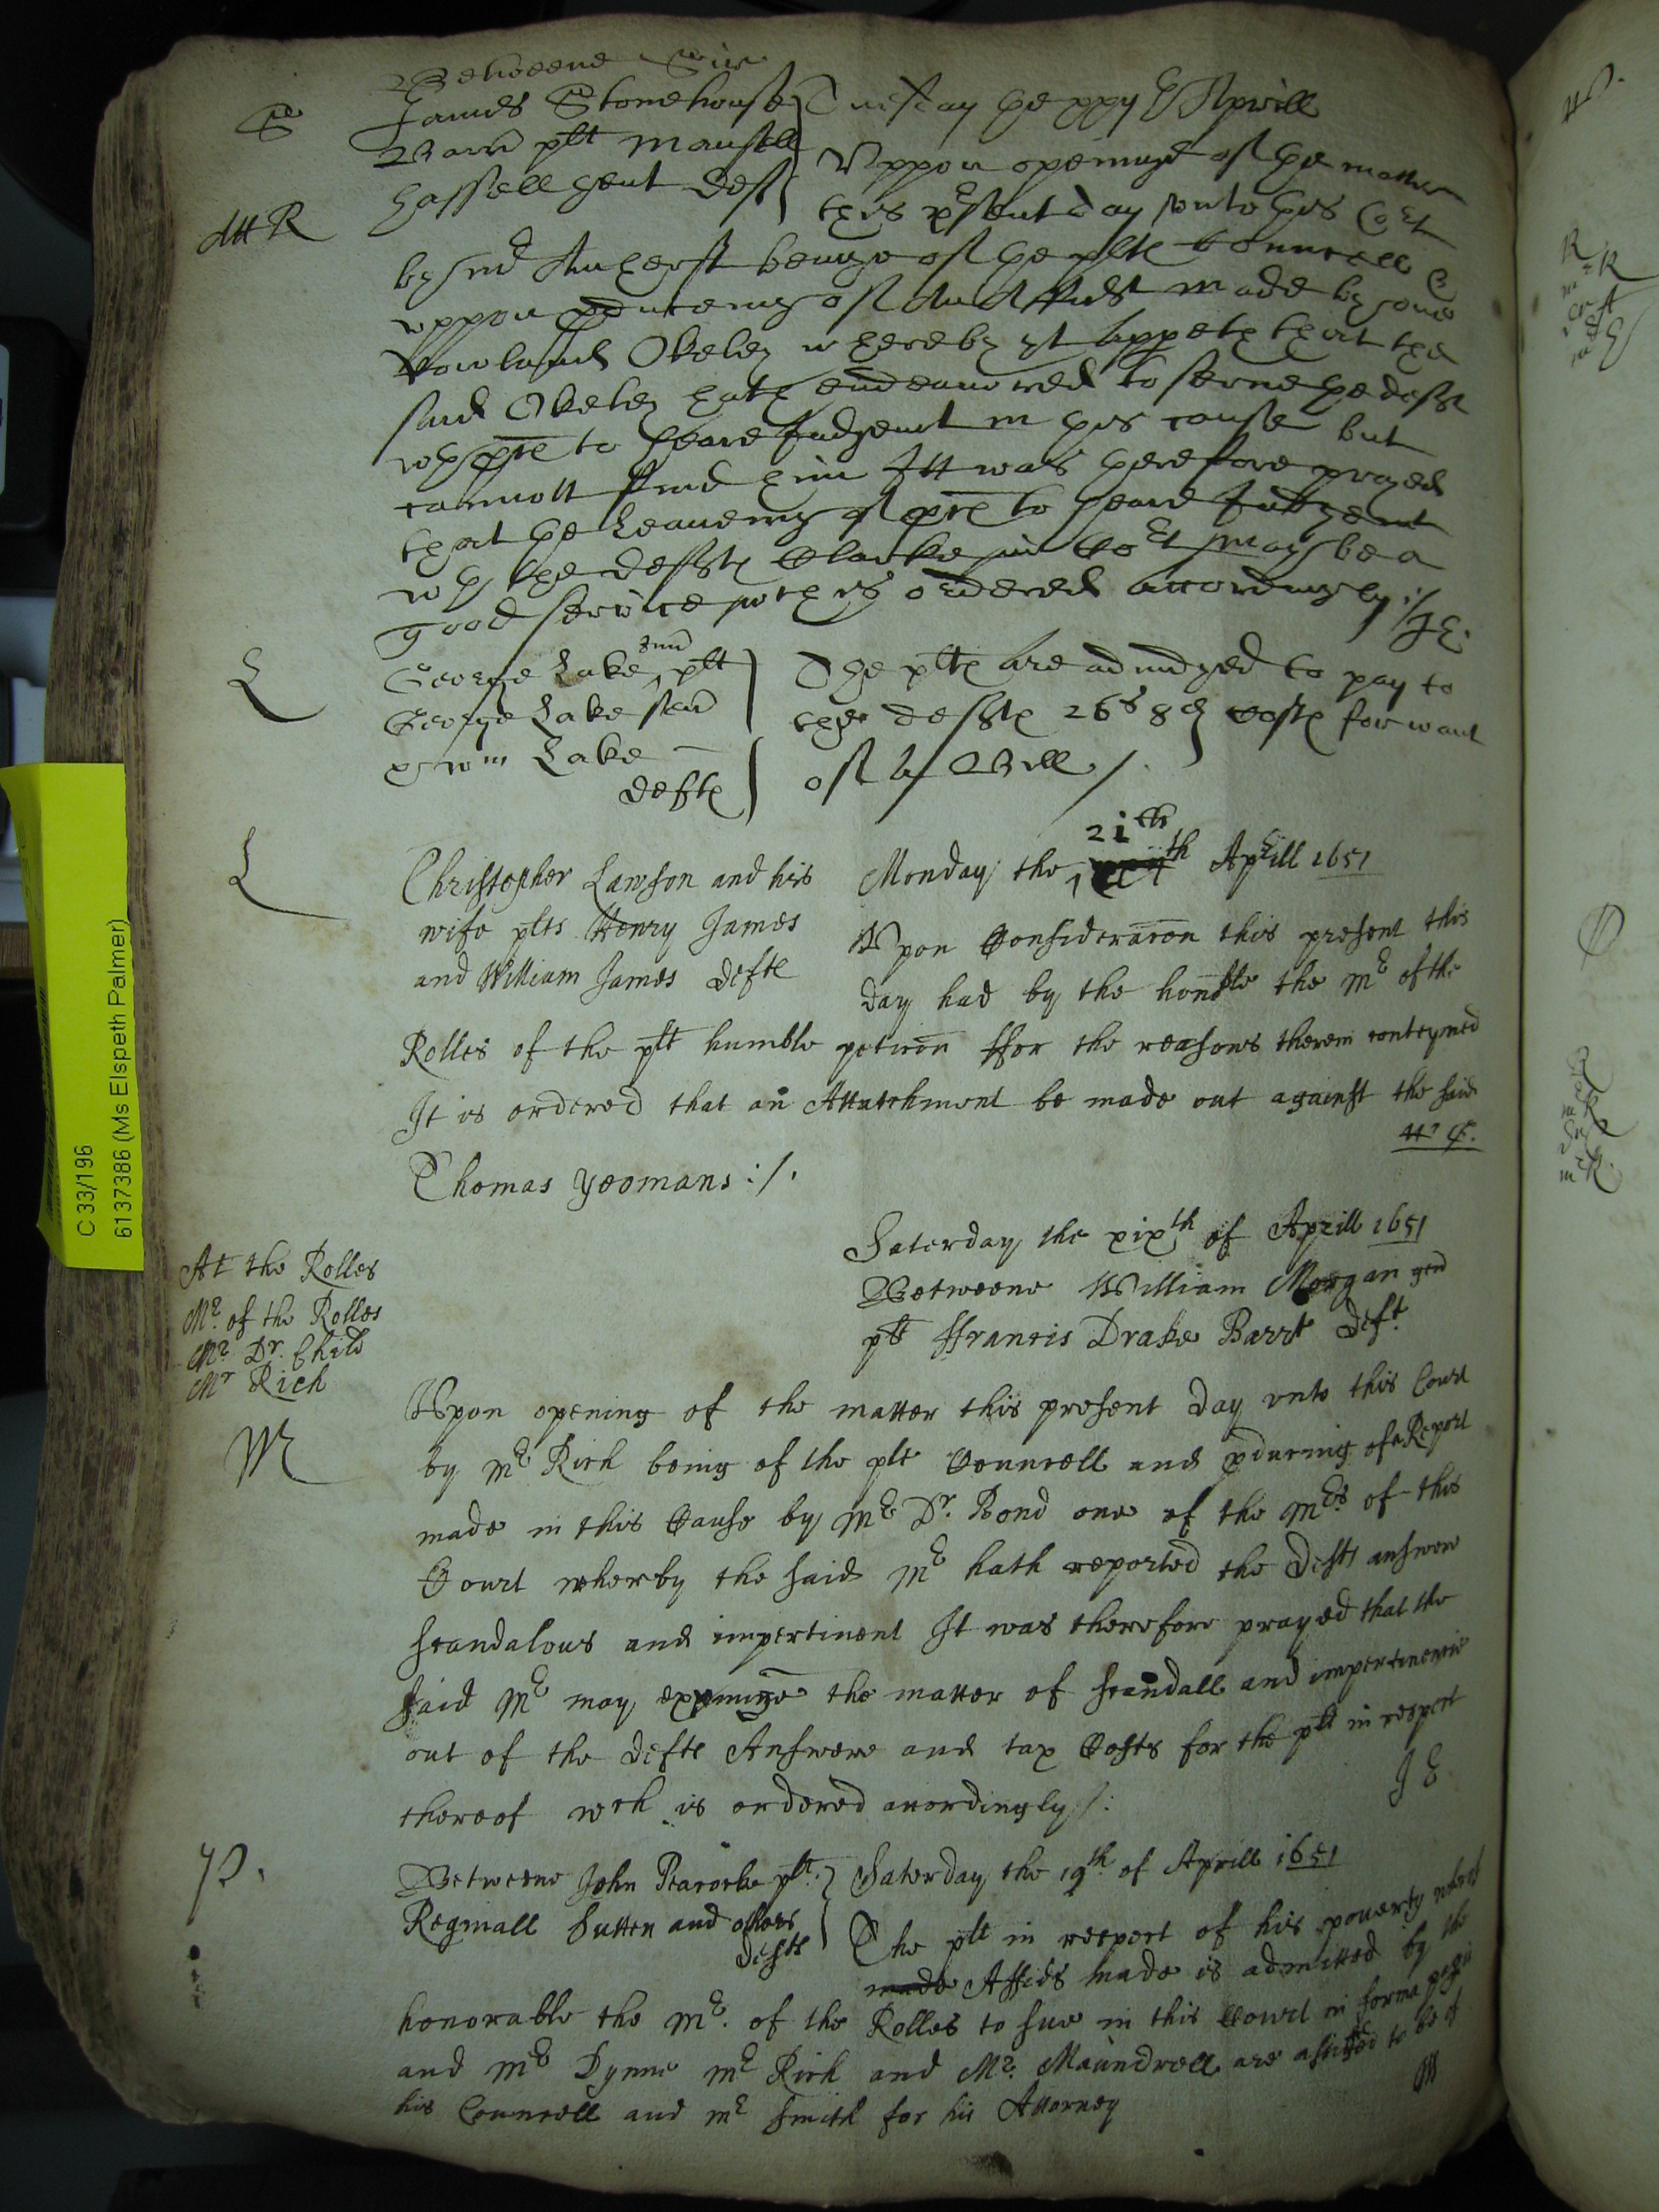 S
Att R
Betweene Sir
James Stonehouse
Barrt plt Mansell
hassell gent deft
Tuesday the xxij th Aprill
Vppon openinge of the matter
this psent day vnto this Cort
by mr Amherst beinge of the plts Councell &
vppon pducemg of an Affidt made by one
Rowland Okeley whereby yt appeth that the
said Okeley hath endeauored to serue the defft
wth pces to heare Judgemt in this cause but
cannott find him Itt was therefore prayed
that the leaueing of pces to heare Judgemt
wth the deffts Clarke in Cort may be a
good service wch is ordered accordingly ·/.
J E.
L
George Lake Junr plt
George Lake senr
& wm Lake
defts
The plts are adiudged to pay to
the deffts 26s 8d Costs for want
of a Bill /.
L
Christopher Lawson and his
wife plts Henry James
and William James Defts
Monday the 21th th Aprill 1651
Vpon Consideracon this present this
day had by the honble the Mr of the
Rolles of the plt humble peticon ffor the reasons therein conteyned
It is ordered that an Attatchment be made out against the said
Thomas Yeomans :/.
Saterday the xixth of Aprill 1651
Betweene William Morgan gen
plt ffrancis Drake Barrt Deft.
At the Rolles
Mr. of the Rolles
Mr. Dr. Child
Mr Rich
M
Vpon opening of the matter this present Day vnto this Court
by Mr Rich being of the plts Councell and pduceing of a Report
made in this Cause by Mr Dr. Bond one of the Mrs of this
Court wherby the said Mr hath reported the Defts answere
scandalous and impertinent It was therefore prayed that the
said Mr may expunge the matter of scandall and impertinencie
out of the Defts Answere and tax Costs for the plt in respect
thereof wch is ordered accordingly /:
J E
P.
Betweene John Pearocke plt.
Reginall Sutten and others
Defts
Saterday the 19th of Aprill 1651
The plt in respect of his pouerty whereof
made Affids made is admitted by the
honorable the Mr. of the Rolles to sue in this Court in forma
and Mr Dynne Mr Rich and Mr. Maundrell are assigned to be of
his Councell and Mr Smith for his Attorney
C 33/196
6137386 (Ms Elspeth Palmer)